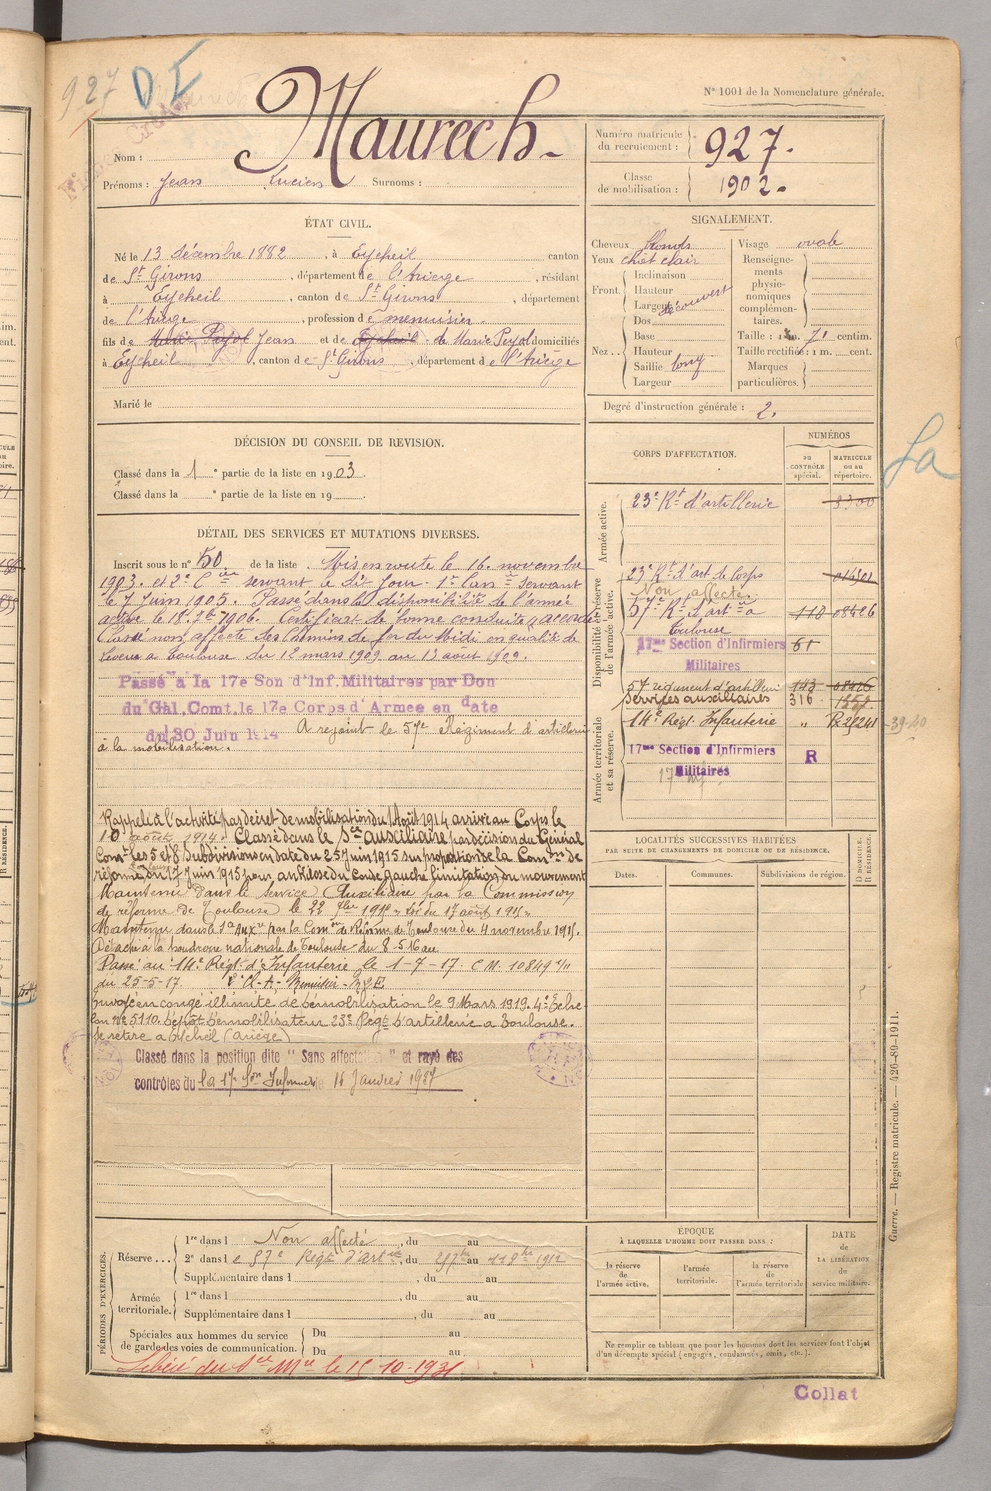 927
D I
N° 1001 de la Nomenclature générale.
Nom : Maurech
Prénoms : Jean Lucien Surnoms :
Numéro matricule du recrutement : 927.
Classe de mobilisation : 1902.
ÉTAT CIVIL.
Né le 13 décembre 1882, à Eycheil, canton
de St Girons, département de l'Ariège, résidant
à Eycheil, canton de St Girons, département
de l'Ariège, profession de menuisier.
fils de Marie Pujol Jean et de Eycheil de Marie Pujol domiciliés
à Eycheil, canton de St Girons, département de l'Ariège
Marié le
SIGNALEMENT.
Cheveux blonds
Yeux chât clair
Front. Inclinaison
Hauteur
Largeur découvert
Nez... Dos
Base
Hauteur
Saillie long
Largeur
Visage ovale
Renseignements physionomiques complémentaires.
Taille : 1 m. 71 centim.
Taille rectifiée : 1 m. cent.
Marques particulières.
Degré d'instruction générale : 2.
DÉCISION DU CONSEIL DE REVISION.
Classé dans la 1e partie de la liste en 1903.
Classé dans la e partie de la liste en 19
DÉTAIL DES SERVICES ET MUTATIONS DIVERSES.
Inscrit sous le n° 50 de la liste. Mis en route le 16 novembre
1903. et 2e Cer servant le dit jour. 1er Can servant
le 7 Juin 1905. Passé dans la disponibilité de l'armée
active le 18 7bre 1906. Certificat de bonne conduite accordé
Classé non affecté des Chemins de fer du Midi en qualité de
à Toulouse du 12 mars 1909 au 13 août 1909.
Passé à la 17e Son d'Inf. Militaires par Don
du Gal. Comt. le 17e Corps d'Armée en date
du 30 Juin 1914 A rejoint le 57e Régiment d'artillerie
à la mobilisation.
Rappelé à l'activité par décret de mobilisation du 1 Août 1914 arrivé au Corps le
10 août 1914. Classé dans le Sce auxiliaire par décision du Général
Comt les 5 et 8 Subdivisions en date du 25 Juin 1915 sur proposition de la Comon de
réforme du 17 Juin 1915 pour ankylose du coude gauche limitation du mouvement
Maintenu dans le service Auxiliaire par la Commission
de réforme de Toulouse le 22 1915 Loi du 17 août 1915
Maintenu dans le Sce Auxre par la Comon de Réforme de Toulouse du 4 novembre 1915.
Détaché à la poudrerie nationale de Toulouse du 8-5-16 au
Passé au 14e Régt d'Infanterie le 1-7-17 C.M. 10849
du 25-5-17.
Envoyé en congé illimité de démobilisation le 9 Mars 1919. 4e Eche
lon N° 5110. dépôt démobilisateur 23e Régt d'artillerie à Toulouse.
Se retire à Eycheil (Ariège)
Classé dans la position dite "Sans affectation" et rayé des
contrôles du la 17e Son Infirmiers le 16 Janvier 1927
CORPS D'AFFECTATION.
NUMÉROS
AU CONTRÔLE spécial.
MATRICULE ou au répertoire.
Armée active.
23e Rt d'artillerie 8300
Disponibilité et réserve de l'armée active.
23e Rt d'art de Corps
Non affecté.
57e Rt d'artie à Toulouse 110 08426
17me Section d'Infirmiers Militaires 61
57 régiment d'artillerie 143 08426
Services auxiliaires 316
Armée territoriale et sa réserve.
14e Régt. Infanterie "
17me Section d'Infirmiers Militaires R
LOCALITÉS SUCCESSIVES HABITÉES
PAR SUITE DE CHANGEMENTS DE DOMICILE OU DE RÉSIDENCE.
Dates. Communes. Subdivisions de région. D DOMICILE. R RÉSIDENCE.
PÉRIODES D'EXERCICES.
Réserve... 1re dans l Non affecté, du au
2e dans le 57e Regt d'artie, du au 1912
Supplémentaire dans l , du au
Armée territoriale. 1re dans l , du au
Supplémentaire dans l , du au
Spéciales aux hommes du service de garde des voies de communication. Du au
Du au
Libéré du Sce Mre le 15 10-1931
ÉPOQUE
À LAQUELLE L'HOMME DOIT PASSER DANS :
la réserve de l'armée active.
l'armée territoriale.
la réserve de l'armée territoriale
DATE
de
LA LIBÉRATION
du
service militaire.
Ne remplir ce tableau que pour les hommes dont les services font l'objet
d'un décompte spécial (engagés, condamnés, omis, etc.).
Guerre. — Registre matricule. — 426-89-1911.
Collat